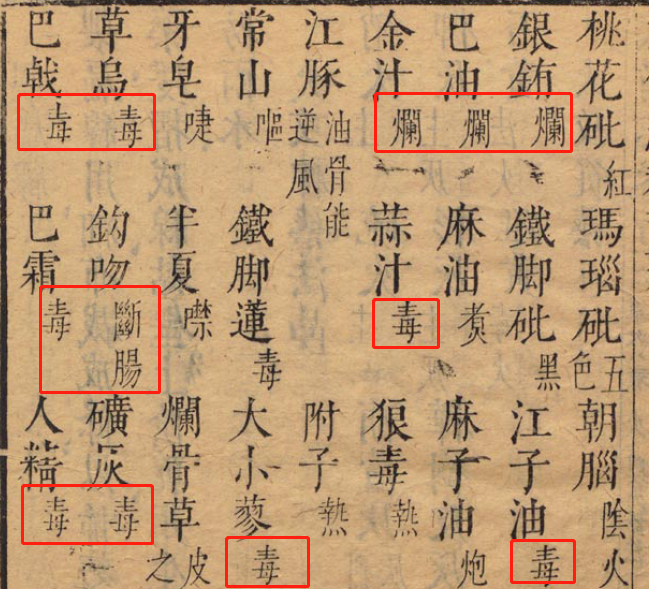 桃花砒紅瑪瑙砒五色朝腦陰火
銀銪爛鐵脚砒黑江子油毒
巴油爛麻油煑麻子油炮
金汁爛蒜汁毒狼毒熱
江豚油骨能逆風附子熱
常山嘔鐵脚蓮毒大小蓼毒
牙皂啑半夏噤爛骨草皮之
草烏毒鈎吻斷腸礦灰毒
巴戟毒巴霜毒人精毒